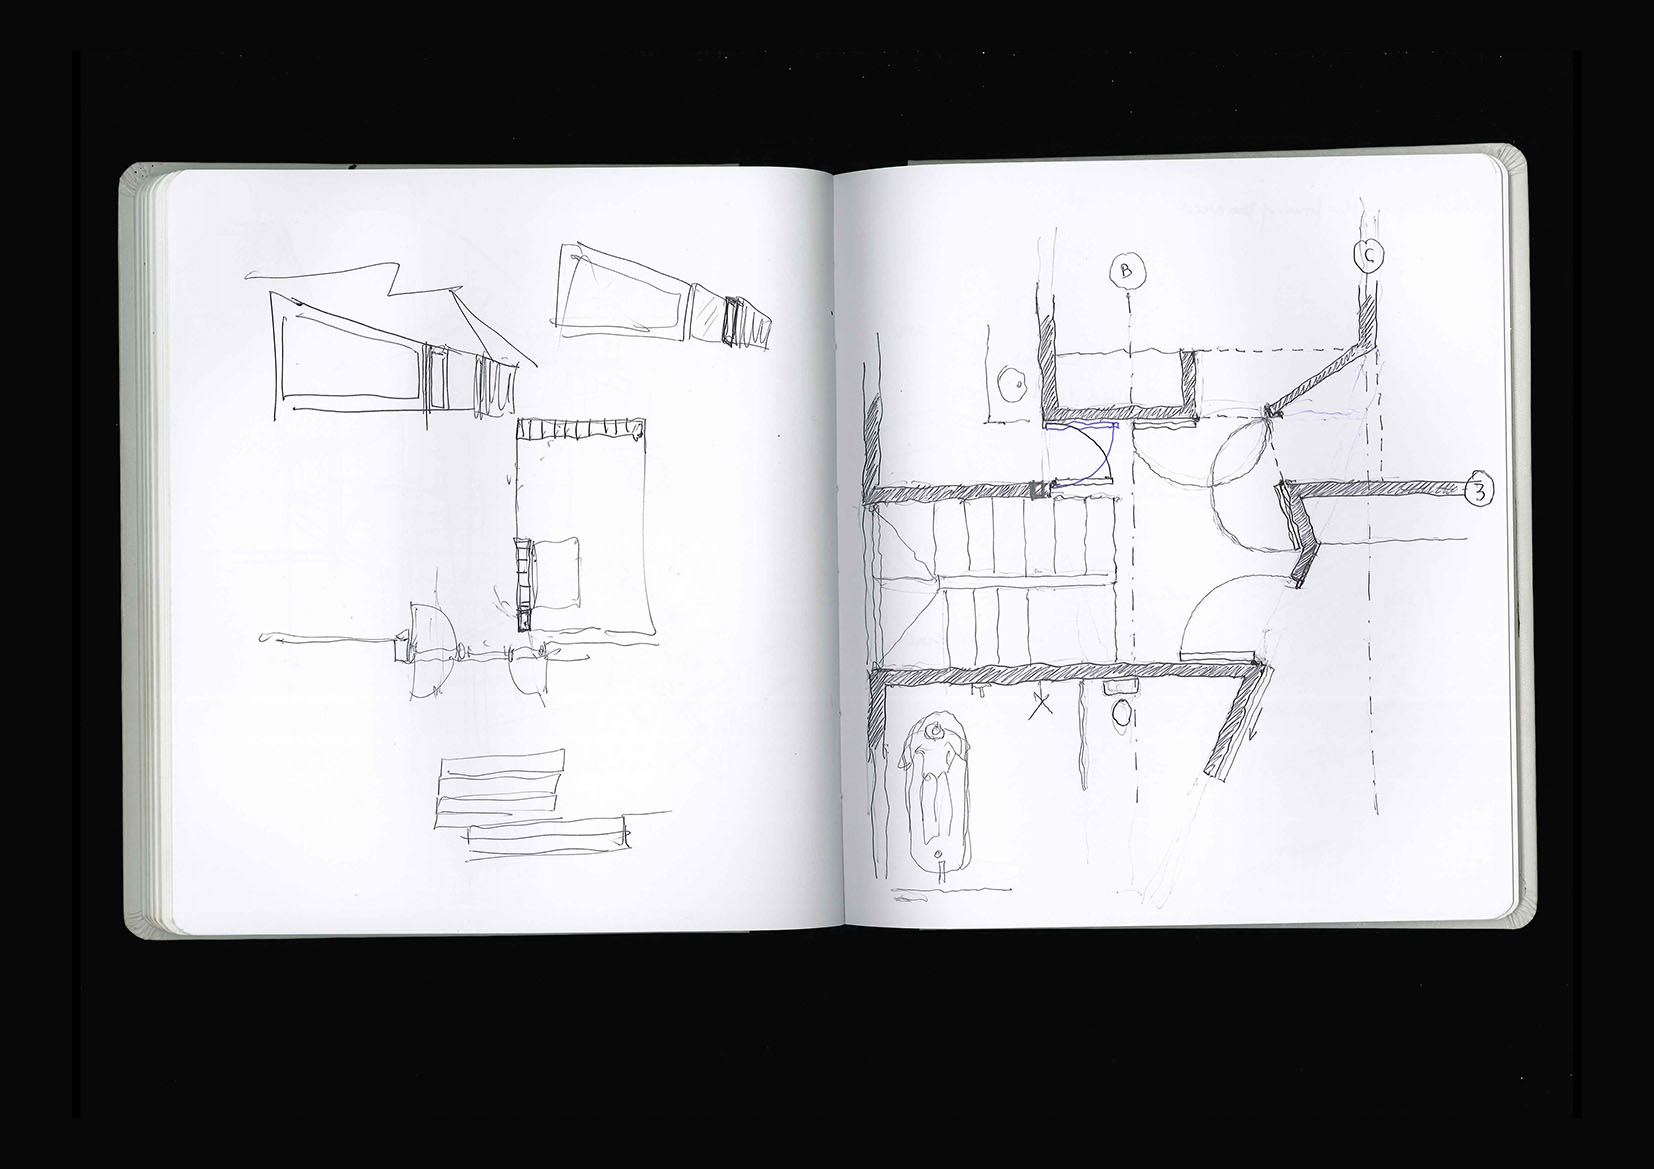 B
C
3